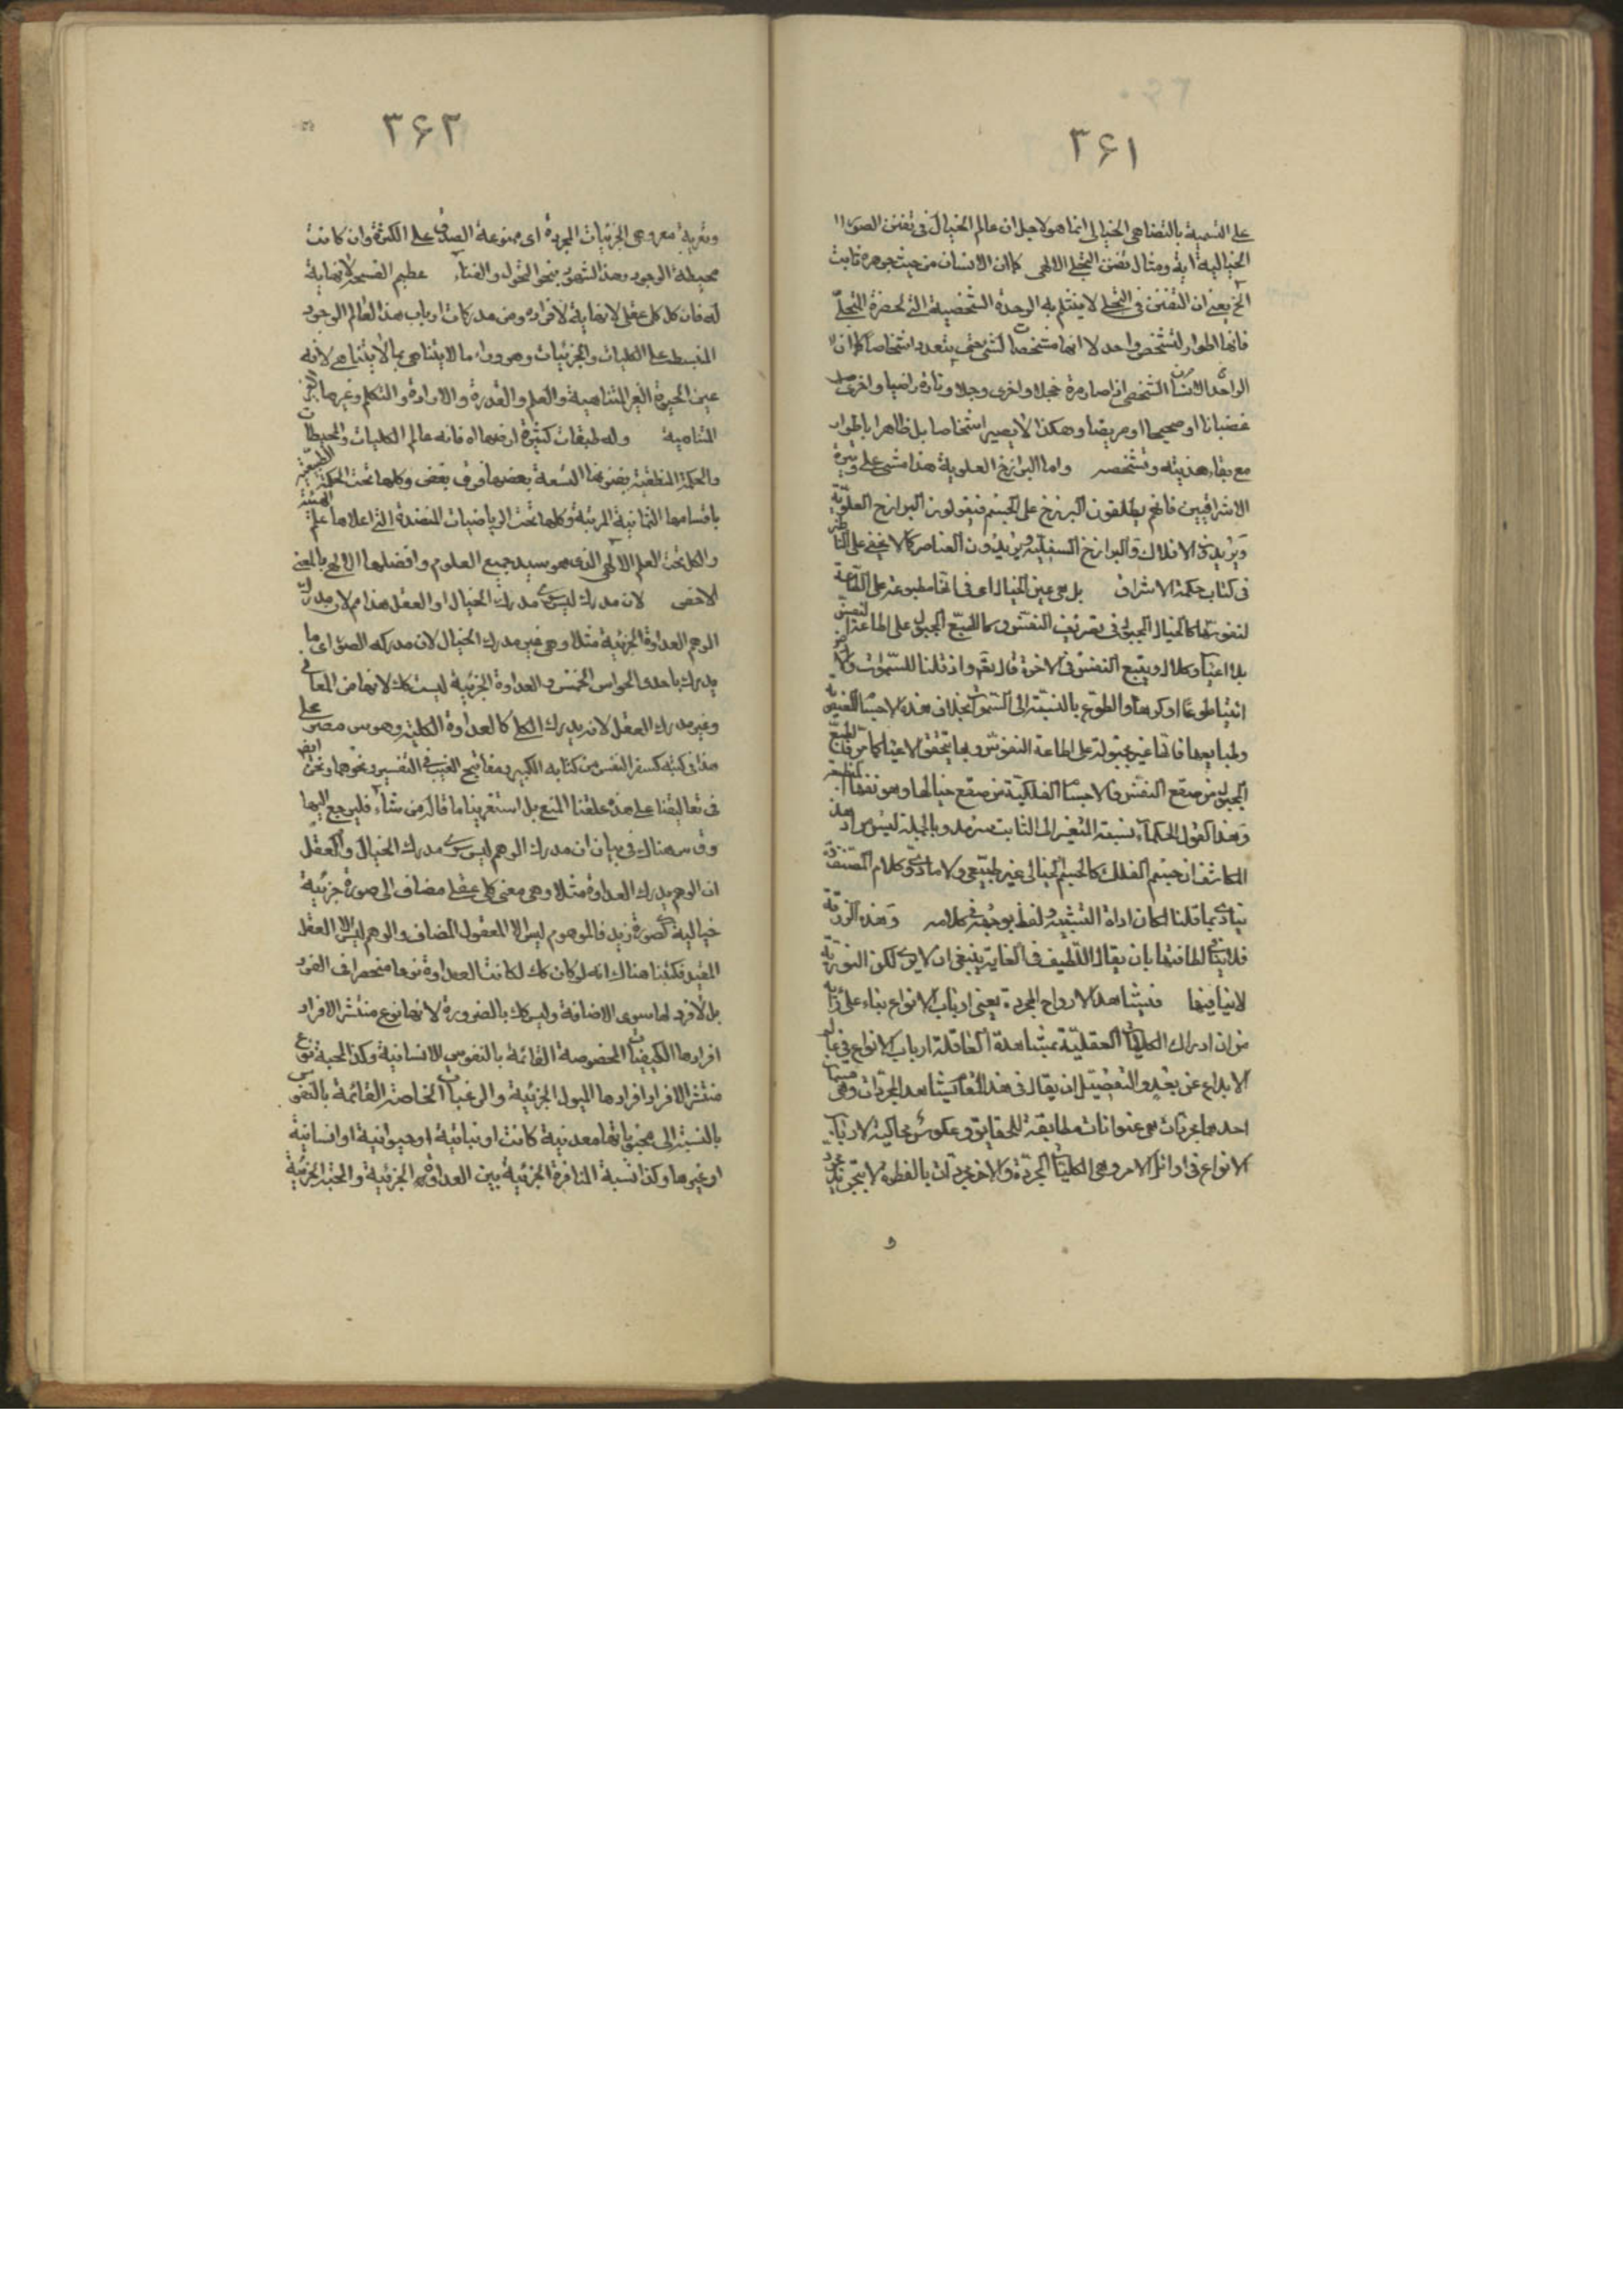 ۳۶۱
على التسمية بالتضاهى الخيالى انما هو لاجل ان عالم الخيال فى تفنن الصور
الخيالية اية ومثال تفنن التجلى الالهى كما ان الانسان من حيث جوهره ثابت
الخ يعنى ان التفنن فى التجلى لا ينثلم به الوحدة الشخصية التى لحضرة التجلى
فانها اطوار لتشخص واحد لا انها مشخصات لشىء حتى يتعدد اشخاصا كما ان
الواحد الانسان الشخصى اذا صار مرة خجلا واخرى وجلا وتارة راضيا واخرى
غضبانا او صحيحا او مريضا وهكذا لا يصير اشخاصا بل ظاهرا باطوار
مع بقاء هذيته وتشخصه واما البرازخ العلوية هذا مشى على وتيرة
الاشراقيين فانهم يطلقون البرزخ على الجسم فيقولون البرازخ العلوية
ويريدون الافلاك والبرازخ السفلية ويريدون العناصر كما لا يخفى على الناظر
فى كتاب حكمة الاشراق بل هى عين الخيال اعنى انها مطبوعة على الطاعة
لنفوسها كالخيال المجبول فى تصريف النفس وكالطبع المجبول على اطاعة النفس
بلا اعياء وكلال ويتبع النفس فى الاخرة قال تعم واذ قلنا للسموات والارض
ائتيا طوعا او كرها والطوع بالنسبة الى السموات بخلاف هذه الاجسام العنصرية
وطبايعها فانها غير مجبولة على اطاعة النفوس وبها يتحقق الاعياء كما مر فالطبع
المجبول من صقع النفس والاجسام الفلكية من صقع خيالها وهو نفسها المنطبعة
وهذا كقول الحكماء نسبة المتغير الى الثابت سرمد وبالجملة ليس مراد هذا
المكاشف ان جسم الفلك كالجسم الخيالى غير طبيعى ولا مادى وكلام المصنف قده
ينادى بما قلنا لمكان اداة التشبيه ولفظ بوجه فى كلامه وهذه الزرقة
فلا ينافى لطافتها بان يقال اللطيف فى الغاية ينبغى ان لا يرى لكن النورية
لا ينافيها فيشاهد الارواح المجردة يعنى ارباب الانواع بناء على رايه
من ان ادراك الكليات العقلية بمشاهدة العاقلة ارباب الانواع فى عالم
الابداع عن بعد والتفصيل ان يقال فى هذا المقام يشاهد المجردات وهى قسمان
احدهما مجردات هى عنوانات مطابقة للحقايق وعكوس محاكية لارباب
الانواع فى اوائل الامر وهى الكليات المجردة والاخر مجردات بالفطرة لا بتجريد مجرد
و
۳۶۲
وتعرية معر وهى الجزئيات المجردة اى ممنوعة الصدق على الكثرة وان كانت
محيطة الوجود وهذا الشهود بنحو التحول والفناء عظيم الفسحة لا نهاية
له فان كل كلى عقلى لا نهاية لافراده ومن مدركات ارباب هذا العالم الوجود
المنبسط على الكليات والجزئيات وهو وراء ما لا يتناهى بما لا يتناهى لانه
عين الحيوة الغير المتناهية والعلم والقدرة والارادة والتكلم وغيرها الغير
المتناهية وله طبقات كثيرة ارفعها اه فانه عالم الكليات والمحيطات
والحكمة المنطقية بفنونها التسعة بعضها فوق بعض وكلها تحت الحكمة الطبيعية
باقسامها الثمانية المرتبة وكلها تحت الرياضيات المنضدة التى اعلاها علم الهيئة
والكل تحت العلم الالهى الذى هو سيد جميع العلوم وافضلها الالهى بالمعنى
الاخص لان مدرك ليس مدرك الخيال او العقل هذا م لان مدرك
الوهم العداوة الجزئية مثلا وهى غير مدرك الخيال لان مدركه الصور اى ما
يدرك باحدى الحواس الخمس والعداوة الجزئية ليست كك لانها من المعانى
وغير مدرك العقل لانه يدرك الكلى كالعداوة الكلية وهو س مصر على
هذا فى كتبه كسفر النفس من كتابه الكبير ومفاتيح الغيب فى التفسير ونحوهما ونحن ايض
فى تعاليقنا على هذه علقنا المنع بل استغربنا ما قال من شاء فليرجع اليها
وق س هناك فى بيان ان مدرك الوهم ليس سوى مدرك الخيال والعقل
ان الوهم يدرك العداوة مثلا وهى معنى كلى عقلى مضاف الى صورة جزئية
خيالية كصورة زيد فالموهوم ليس الا المعقول المضاف والوهم ليس الا العقل
المقيد فكتبنا هناك انه لو كان كك لكانت العداوة نوعا منحصرا فى الفرد
بل لا فرد لها سوى الاضافة وليس كك بالضرورة لانها نوع منتشر الافراد
افرادها الكيفيات المخصوصة القائمة بالنفوس الانسانية وكذا المحبة نوع
منتشر الافراد افرادها الميول الجزئية والرغبات الخاصة القائمة بالنفوس
بالنسبة الى محبوباتها معدنية كانت او نباتية او حيوانية او انسانية
او غيرها وكذا نسبة المنافرة الجزئية بين العداوة الجزئية والمحبة الجزئية